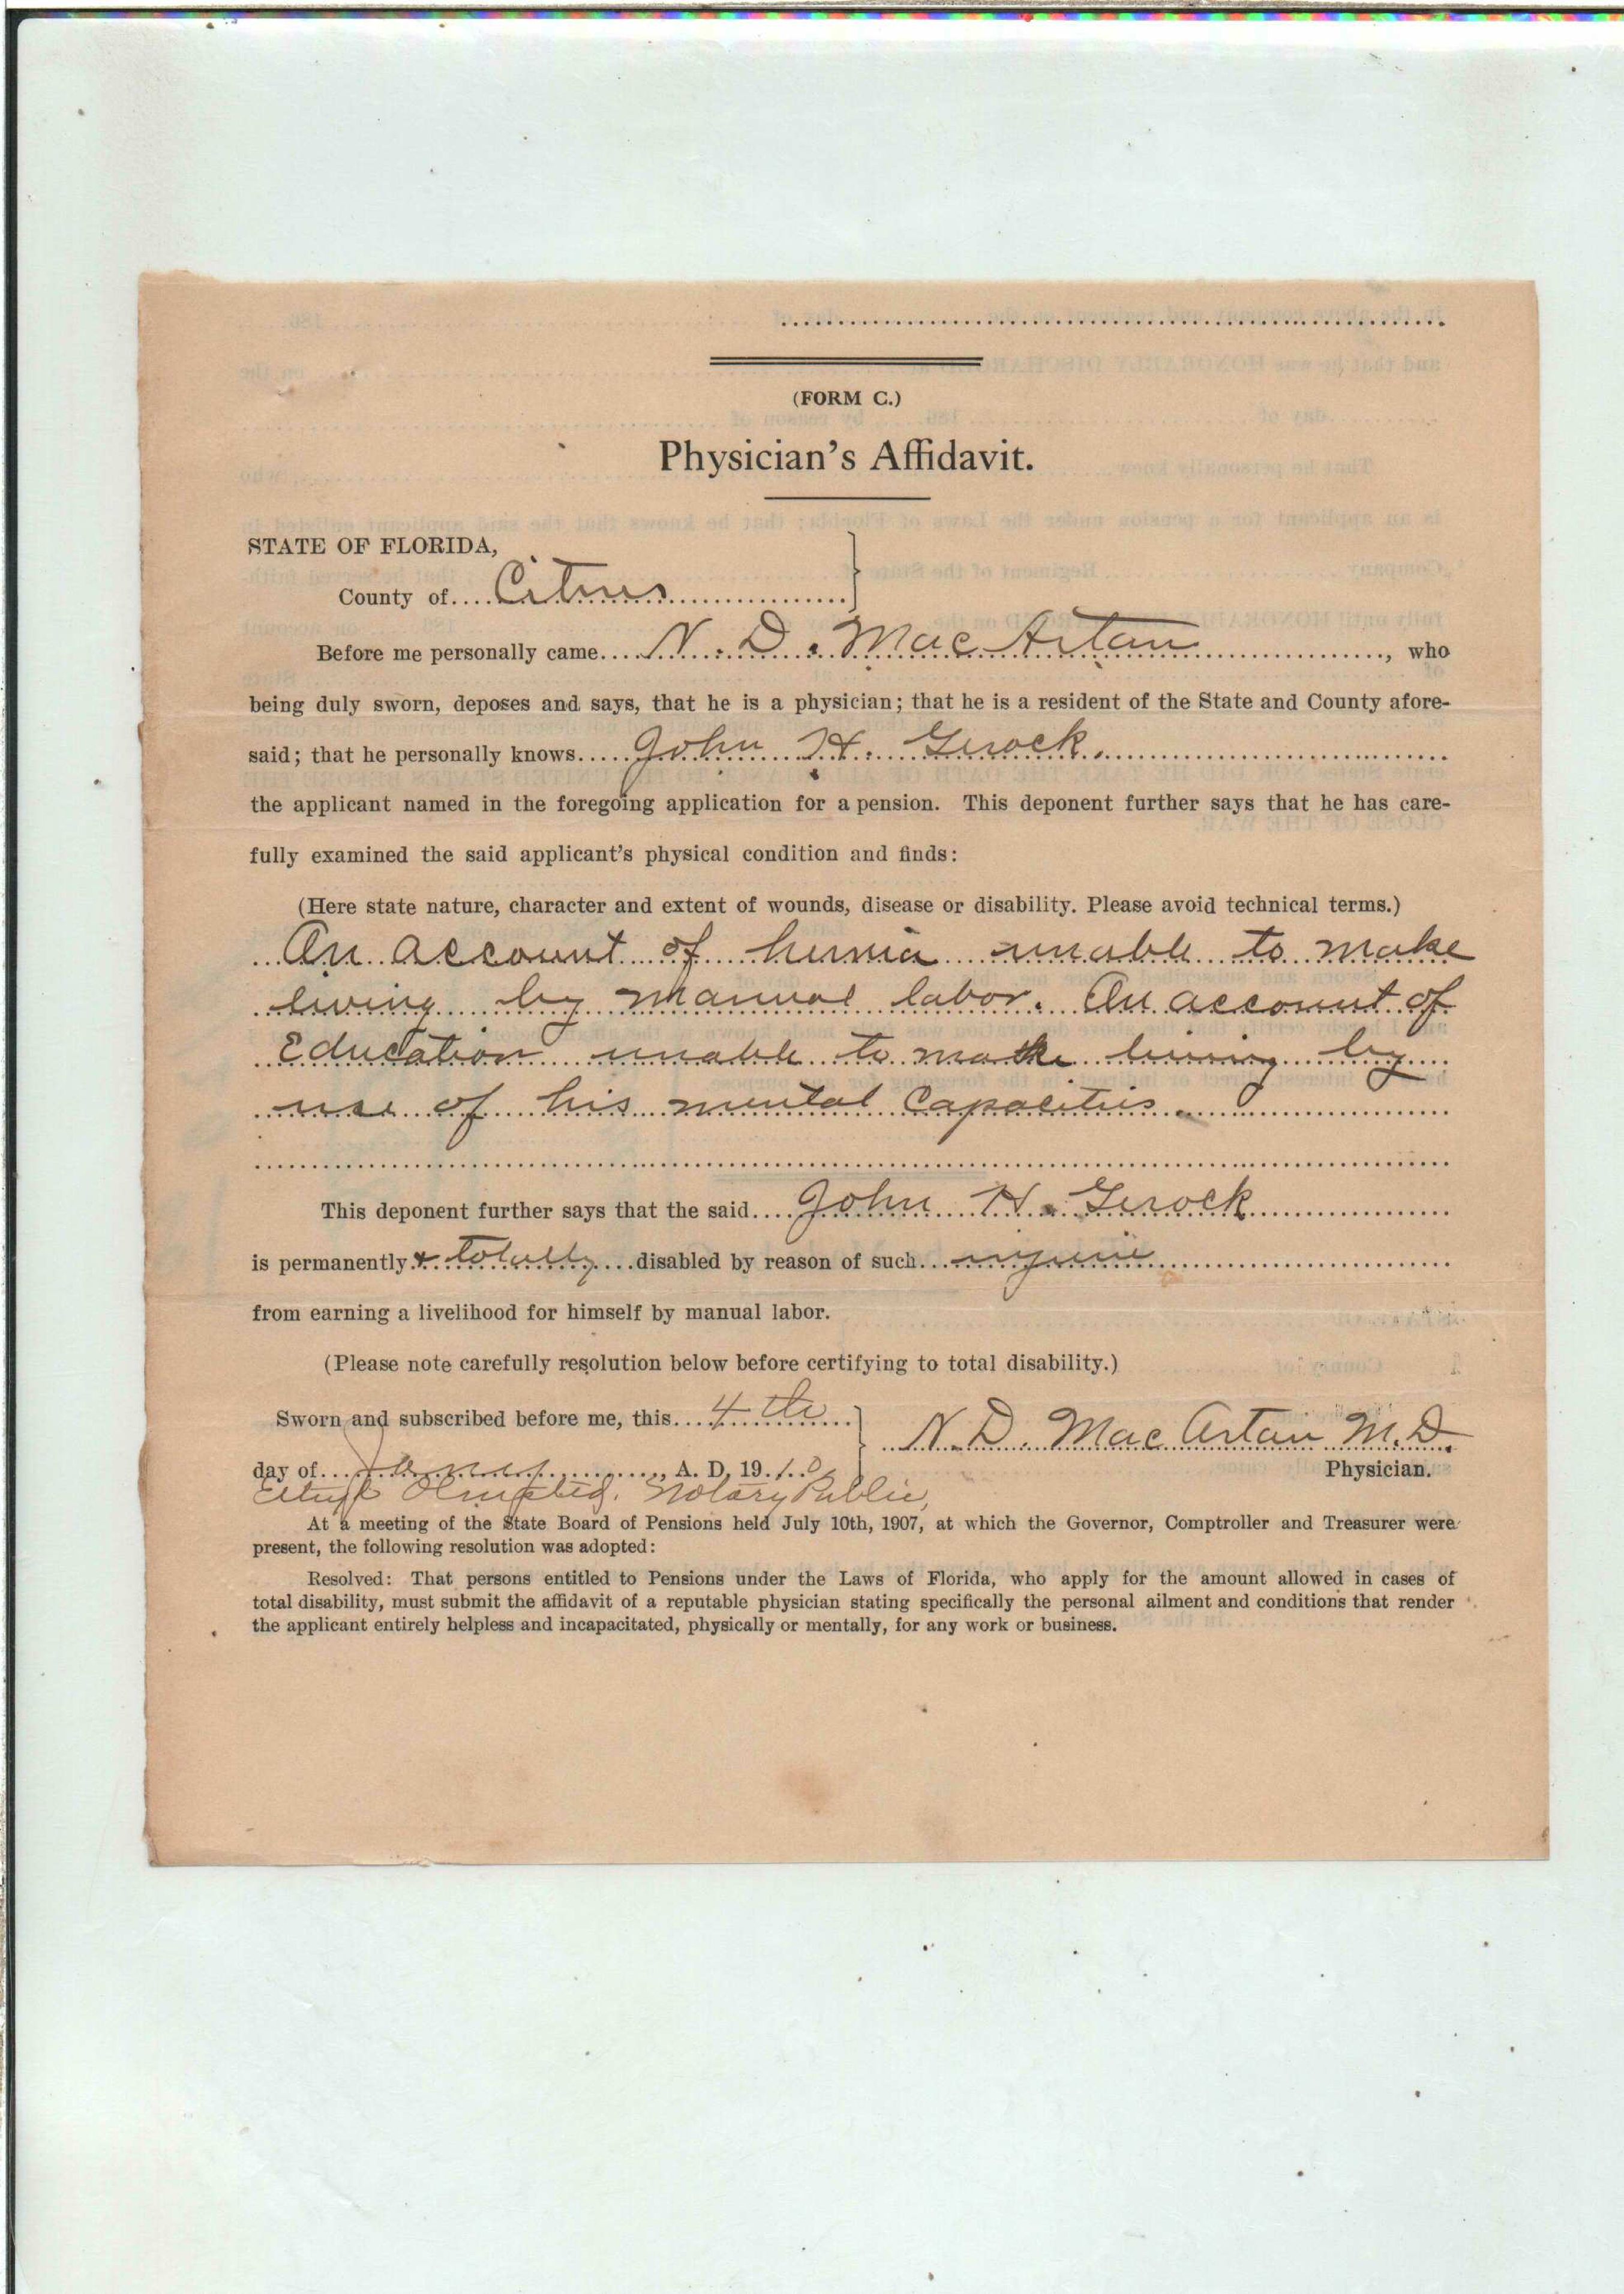 (FORM C.)
Physician's Affidavit.
STATE OF FLORIDA,
County of.... Citrus
Before me personally came.... N. D. Mac Artan ...., who
being duly sworn, deposes and says, that he is a physician; that he is a resident of the State and County afore-
said; that he personally knows.... John H. Gerock.
the applicant named in the foregoing application for a pension. This deponent further says that he has care-
fully examined the said applicant's physical condition and finds:
(Here state nature, character and extent of wounds, disease or disability. Please avoid technical terms.)
On account of hernia unable to make
living by manual labor. On account of
Education unable to make living by
use of his mental Capacities.
This deponent further says that the said.... John H. Gerock
is permanently & totally .... disabled by reason of such....
from earning a livelihood for himself by manual labor.
(Please note carefully resolution below before certifying to total disability.)
Sworn and subscribed before me, this.... 4th
N. D. Mac Artan M.D.
day of...., A. D, 19.10
Physician.
Olmsted, Notary Public,
At a meeting of the State Board of Pensions held July 10th, 1907, at which the Governor, Comptroller and Treasurer were
present, the following resolution was adopted:
Resolved: That persons entitled to Pensions under the Laws of Florida, who apply for the amount allowed in cases of
total disability, must submit the affidavit of a reputable physician stating specifically the personal ailment and conditions that render
the applicant entirely helpless and incapacitated, physically or mentally, for any work or business.